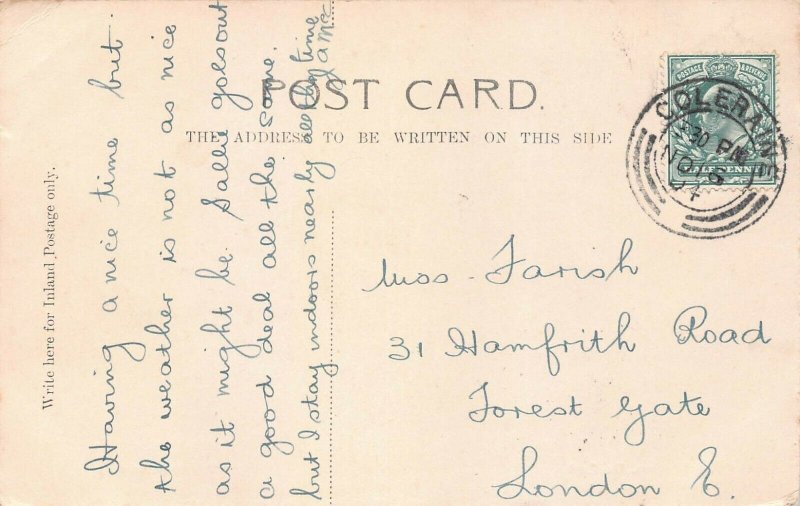 POST CARD.
THE ADDRESS TO BE WRITTEN ON THIS SIDE
Write here for Inland Postage only.
Having a nice time but
the weather is not as nice
as it might be. Sallie goes out
a good deal all the same.
but I stay indoors nearly all the time
POSTAGE & REVENUE
HALF PENNY
COLERAINE
30 PM
NO
04
Miss Farish
31 Hamfrith Road
Forest Gate
London E.